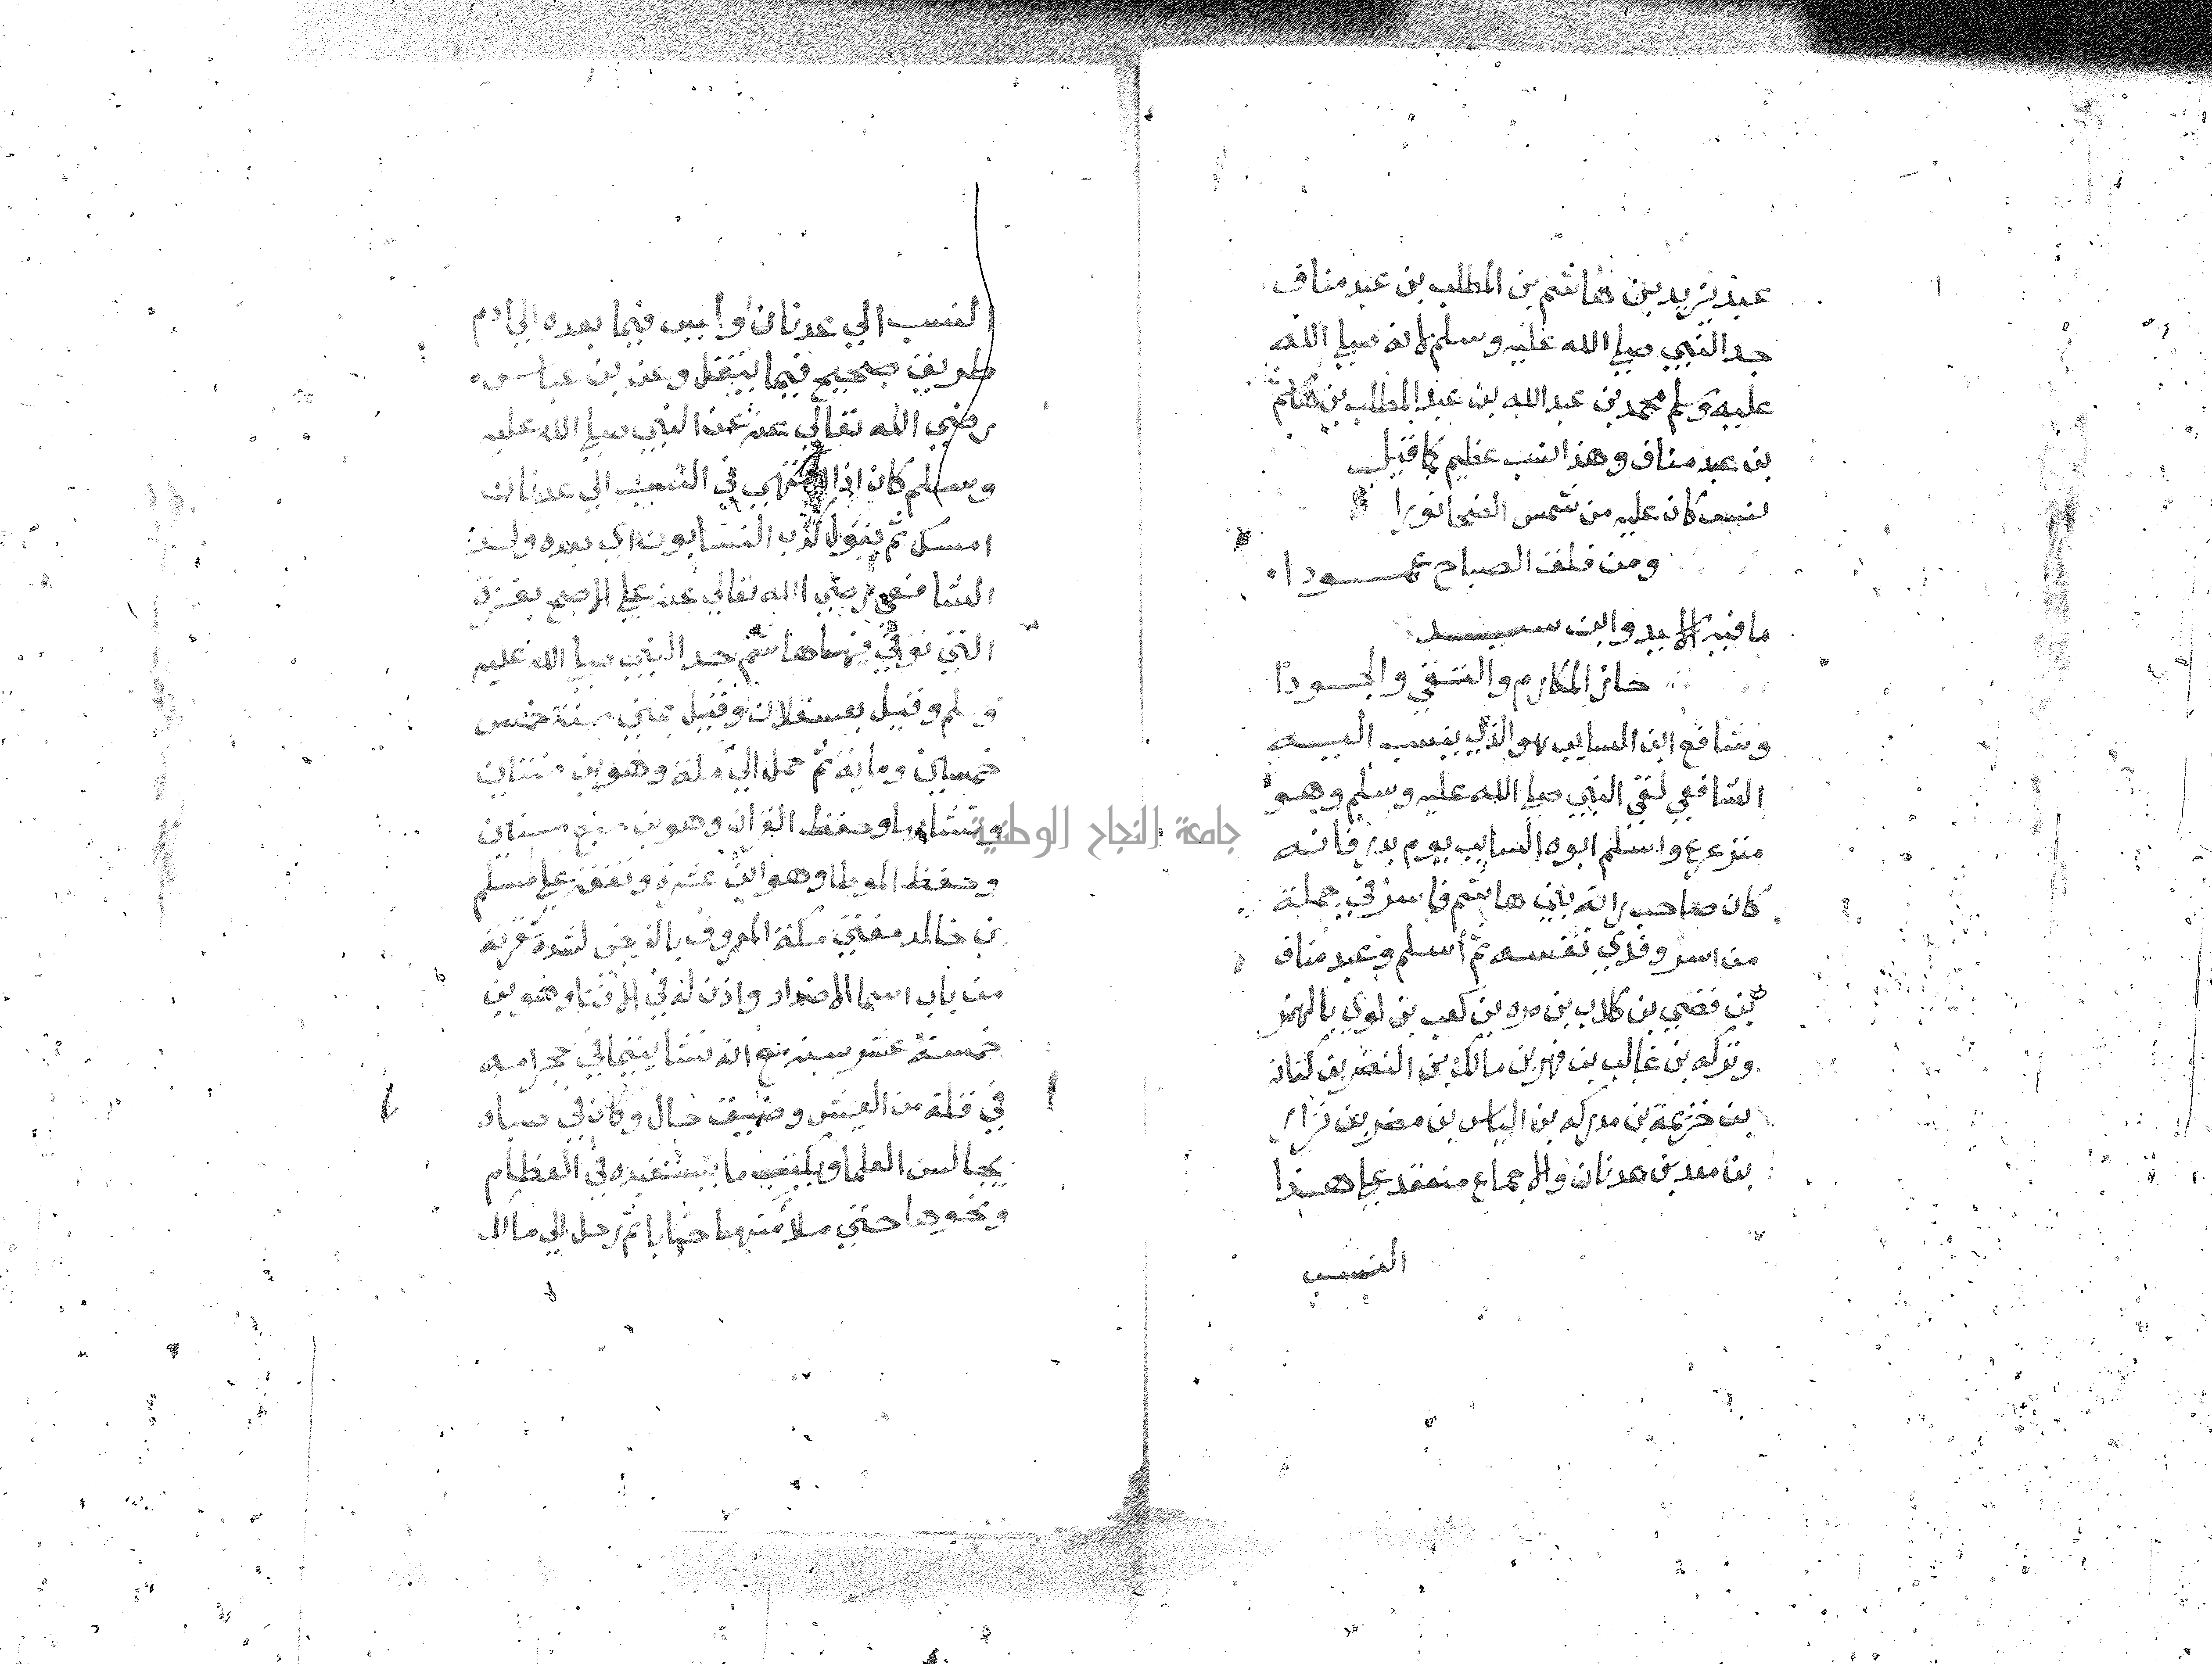 عبد يزيد بن هاشم بن المطلب بن عبد مناف
جد النبي صلي الله عليه وسلم لانه صلي الله
عليه وسلم محمد بن عبد الله بن عبد المطلب بن هاشم
بن عبد مناف وهذا نسب عظيم كما قيل
نسب كان عليه من شمس الضحا نورا
ومن فلق الصباح عمودا
ما فيه الا سيد وابن سيد
حاز المكارم والتقي والجودا
وشافع ابن السايب هو الذي ينسب اليه
الشافعي لقي النبي صلي الله عليه وسلم وهو
مترعرع واسلم ابوه السايب يوم بدر فانه
كان صاحب راية بني هاشم فاسر في جملة
من اسر وفدي نفسه ثم أسلم وعبد مناف
بن قصي بن كلاب بن مره بن كعب بن لوي بالهمز
وتركه بن غالب بن فهر بن مالك بن النضر بن كنانه
بن خزيمة بن مدركه بن الياس بن مضر بن نزار
بن معد بن عدنان والاجماع منعقد علي هذا
النسب
النسب الي عدنان وليس فيما بعده الي ادم
طريق صحيح فيما ينقل وعن بن عباس
رضي الله تعالي عنه عن النبي صلي الله عليه
وسلم كان اذا انتهي في النسب الي عدنان
امسك ثم يقول كذب النسابون اي بعده ولد
الشافعي رضي الله تعالي عنه علي الاصح بغزة
التي توفي فيها هاشم جد النبي صلي الله عليه
وسلم وقيل بعسقلان وقيل بمني سنة خمس
خمسين وماية ثم حمل الي مكة وهو بن سنتين
ونشا بها وحفظ القران وهو بن سبع سنين
وحفظ الموطا وهو ابن عشره وتفقه علي مسلم
بن خالد مفتي مكة المعروف بالزنجي لشدة شقرته
من باب اسما الاضداد واذن له في الافتا وهو بن
خمسة عشر سنه مع انه نشا يتيما في حجر امه
في قلة من العيش وضيق حال وكان في صباه
يجالس العلما ويكتب ما يستفيده في العظام
ونحوها حتي ملأ منها خبايا ثم رحل الي مالك
جامعة النجاح الوطنية